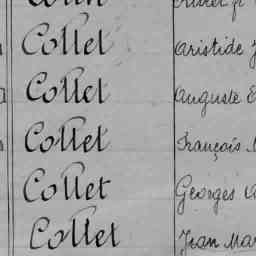 Collet Aristide
Collet Auguste
Collet François
Collet Georges
Collet Jean